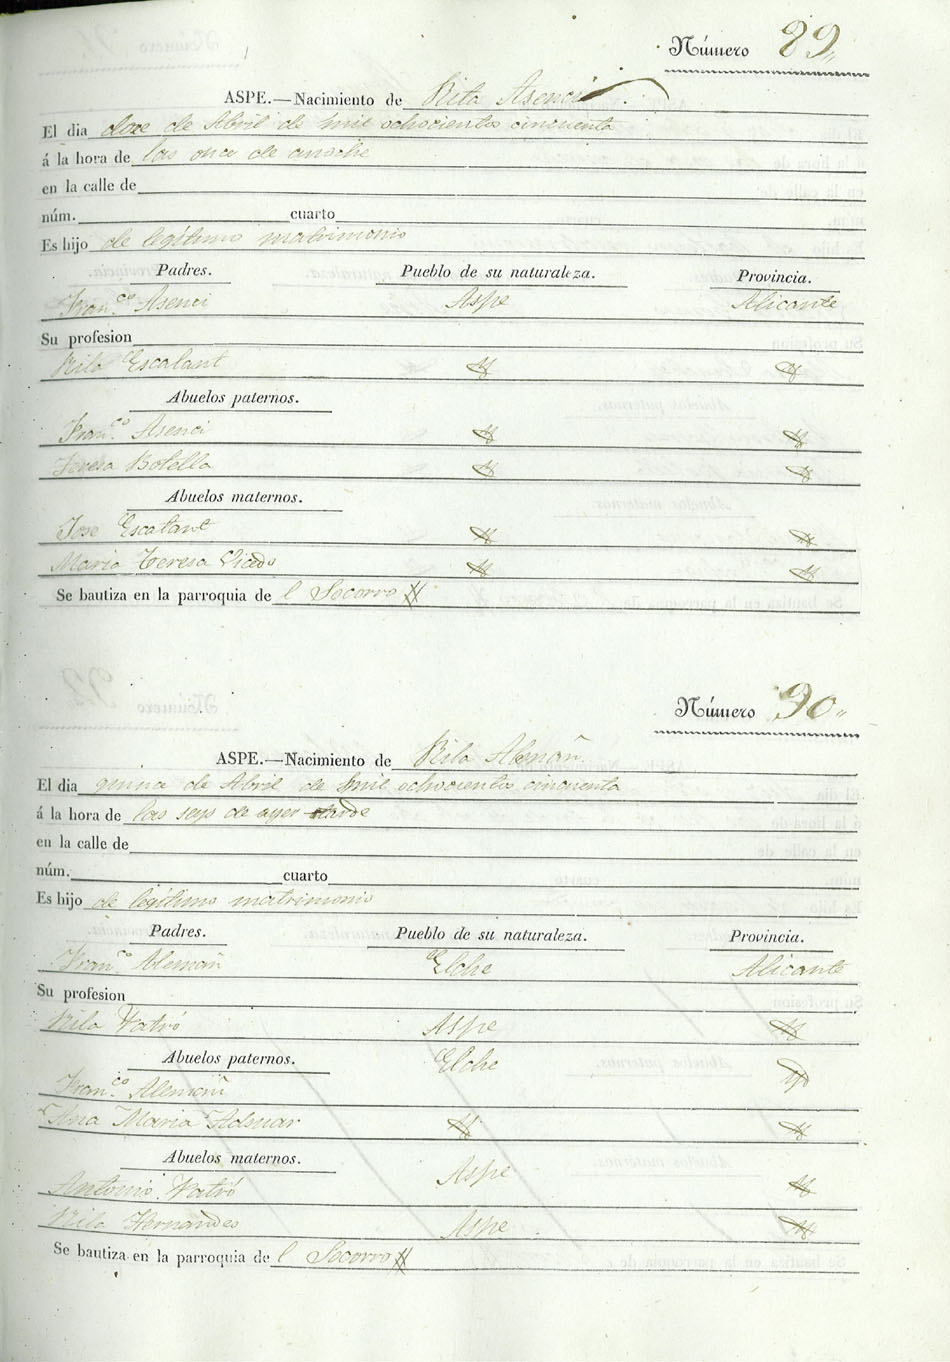 Número 89,,
ASPE.—Nacimiento de Rita Asenci
El dia doze de Abril de mil ochocientos cincuenta
á la hora de las once de anoche
en la calle de
núm. cuarto
Es hijo de legítimo matrimonio
Padres. Pueblo de su naturaleza. Provincia.
Fran.co Asenci Aspe Alicante
Su profesion
Rita Escalant
Abuelos paternos.
Fran.co Asenci
Teresa Botella
Abuelos maternos.
Jose Escalant
Maria Teresa Vicedo
Se bautiza en la parroquia de l Socorro
Número 90,,
ASPE.—Nacimiento de Rita Alemañ
El dia quince de Abril de mil ochocientos cincuenta
á la hora de las seys de ayer tarde
en la calle de
núm. cuarto
Es hijo de legítimo matrimonio
Padres. Pueblo de su naturaleza. Provincia.
Fran.co Alemañ Elche Alicante
Su profesion
Rita Aspe
Abuelos paternos. Elche
Fran.co Alemañ
Ana Maria Adsuar
Abuelos maternos. Aspe
Antonio
Rita Hernandes Aspe
Se bautiza en la parroquia de l Socorro